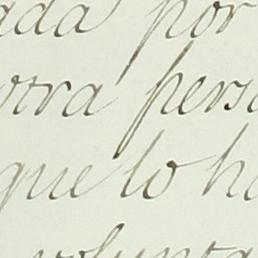 ada por
otra perso
que lo ha
volunta